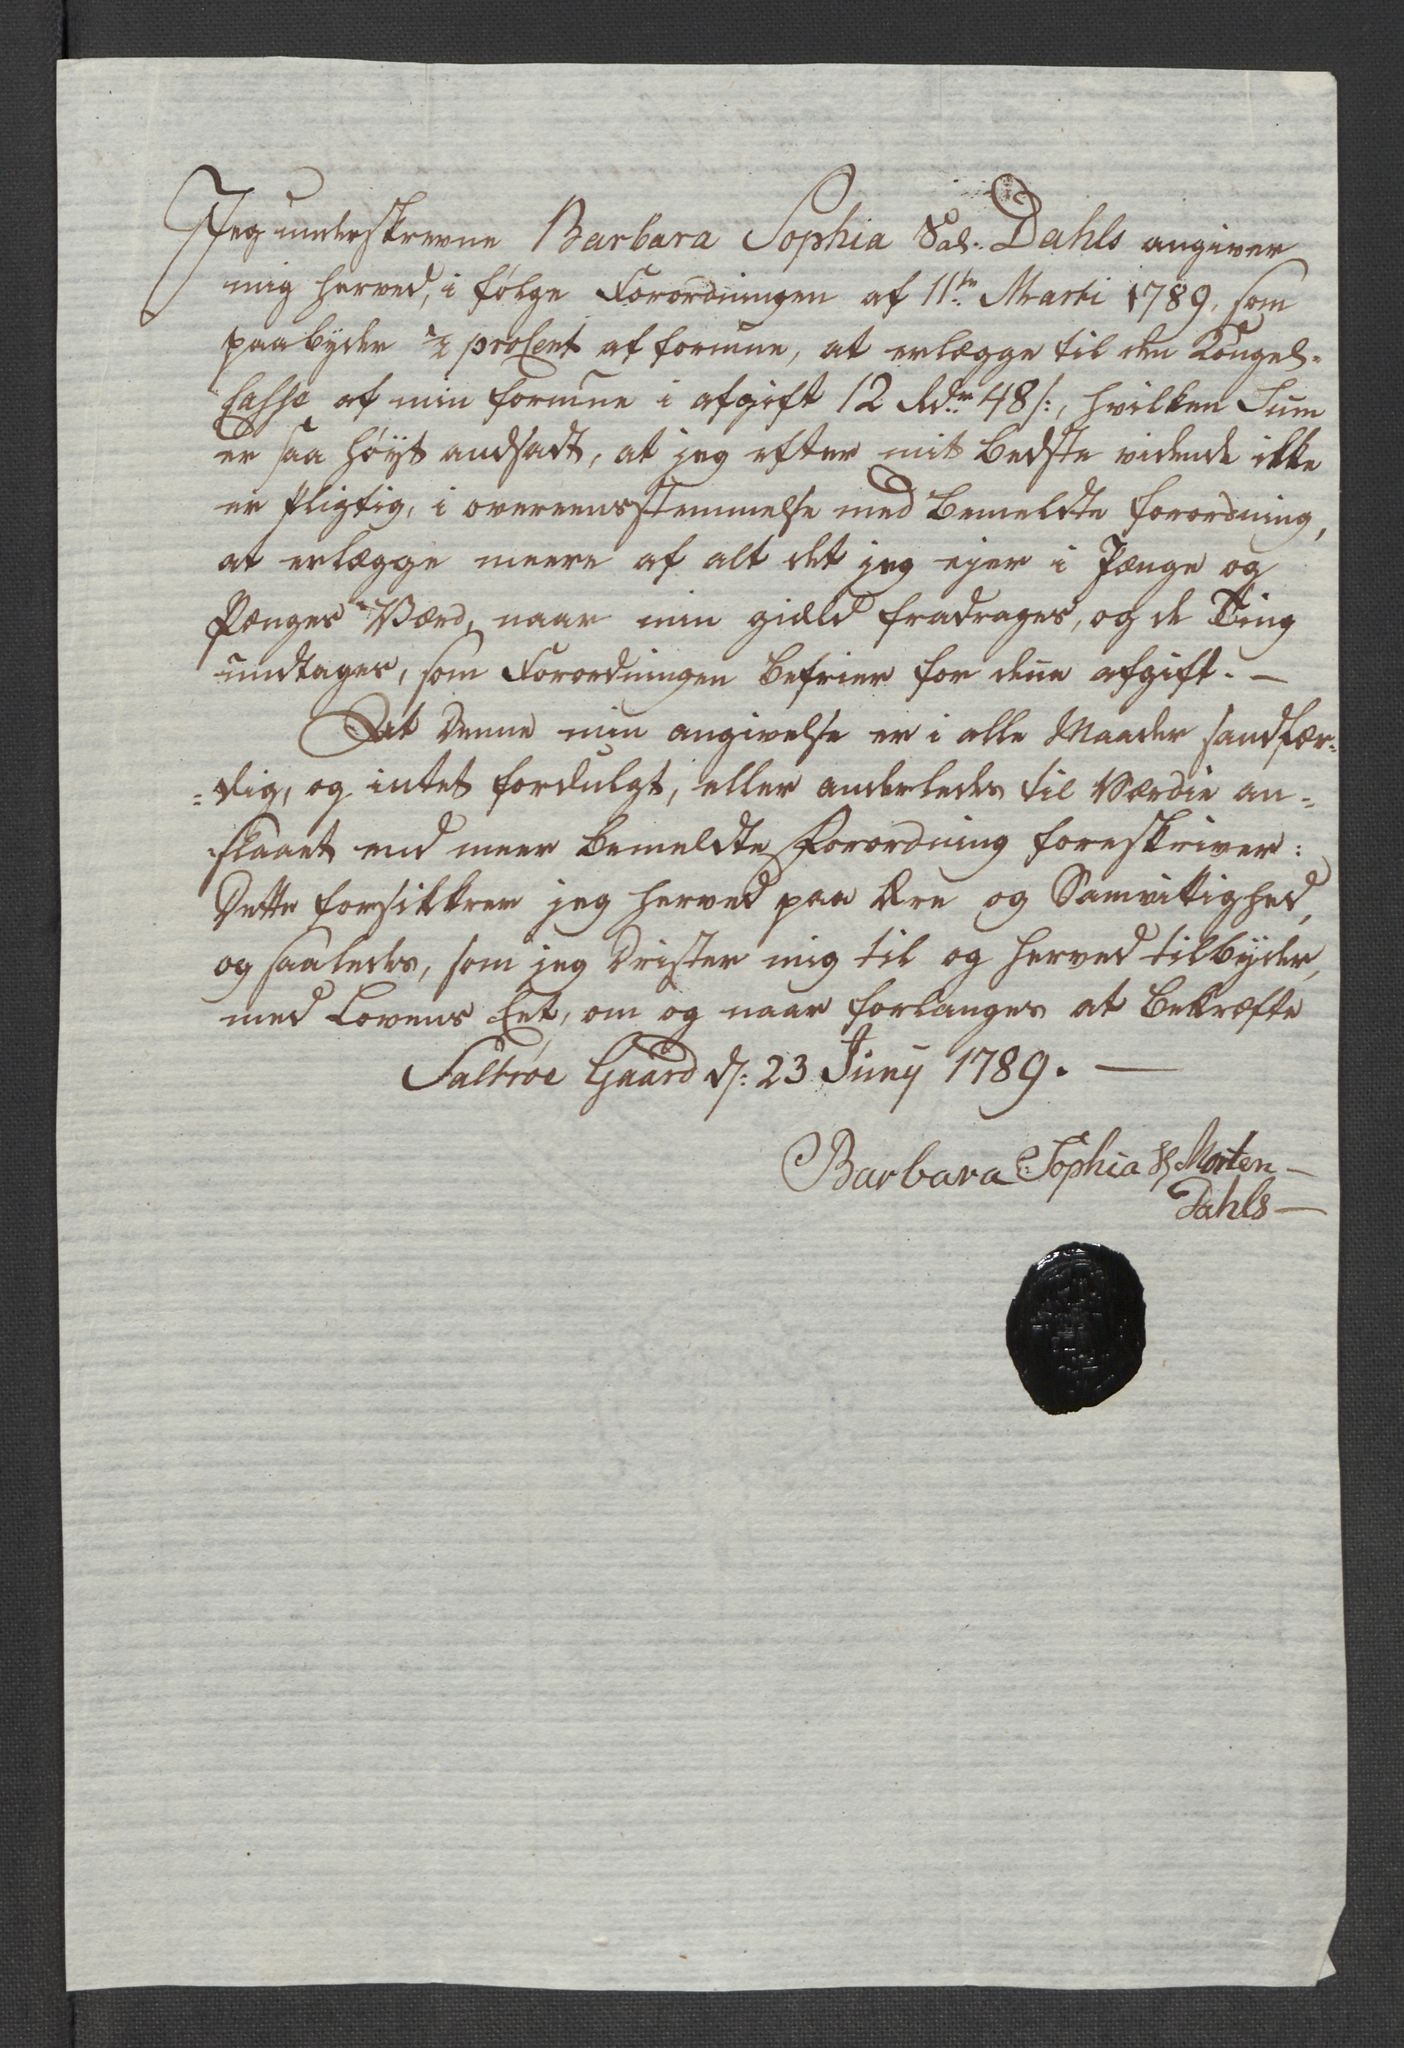 Jeg underskrevne Barbara Sophia Sal. Dahls angiver
mig herved, i følge Forordningen af 11te Marti 1789, som
paabyder ½ proCent af formue, at erlægge til den Kongel.
Casse af min formue i afgift 12 Rdr 48 s:, hvilken Sum
er saa høyt andsadt, at jeg efter mit bedste vidende ikke
er pligtig, i overeensstemmelse med bemeldte forordning,
at erlægge meere af alt det jeg ejer i Penge og
Penges Værd, naar min gield fradrages, og de Ting
undtages, som Forordningen befrier for denne afgift. —
At denne min angivelse er i alle Maader sandfær-
=dig, og intet fordulgt, eller anderledes til Værdie an=
slaaet end meer bemeldte Forordning foreskriver:
Dette forsikkrer jeg herved paa Ære og Samvittighed,
og saaledes, som jeg drister mig til og herved tilbyder,
med Lovens Eed, om og naar forlanges at bekræfte
Saltrøe Gaard d: 23 Juny 1789. —
Barbara Sophia S: Morten —
Dahls —